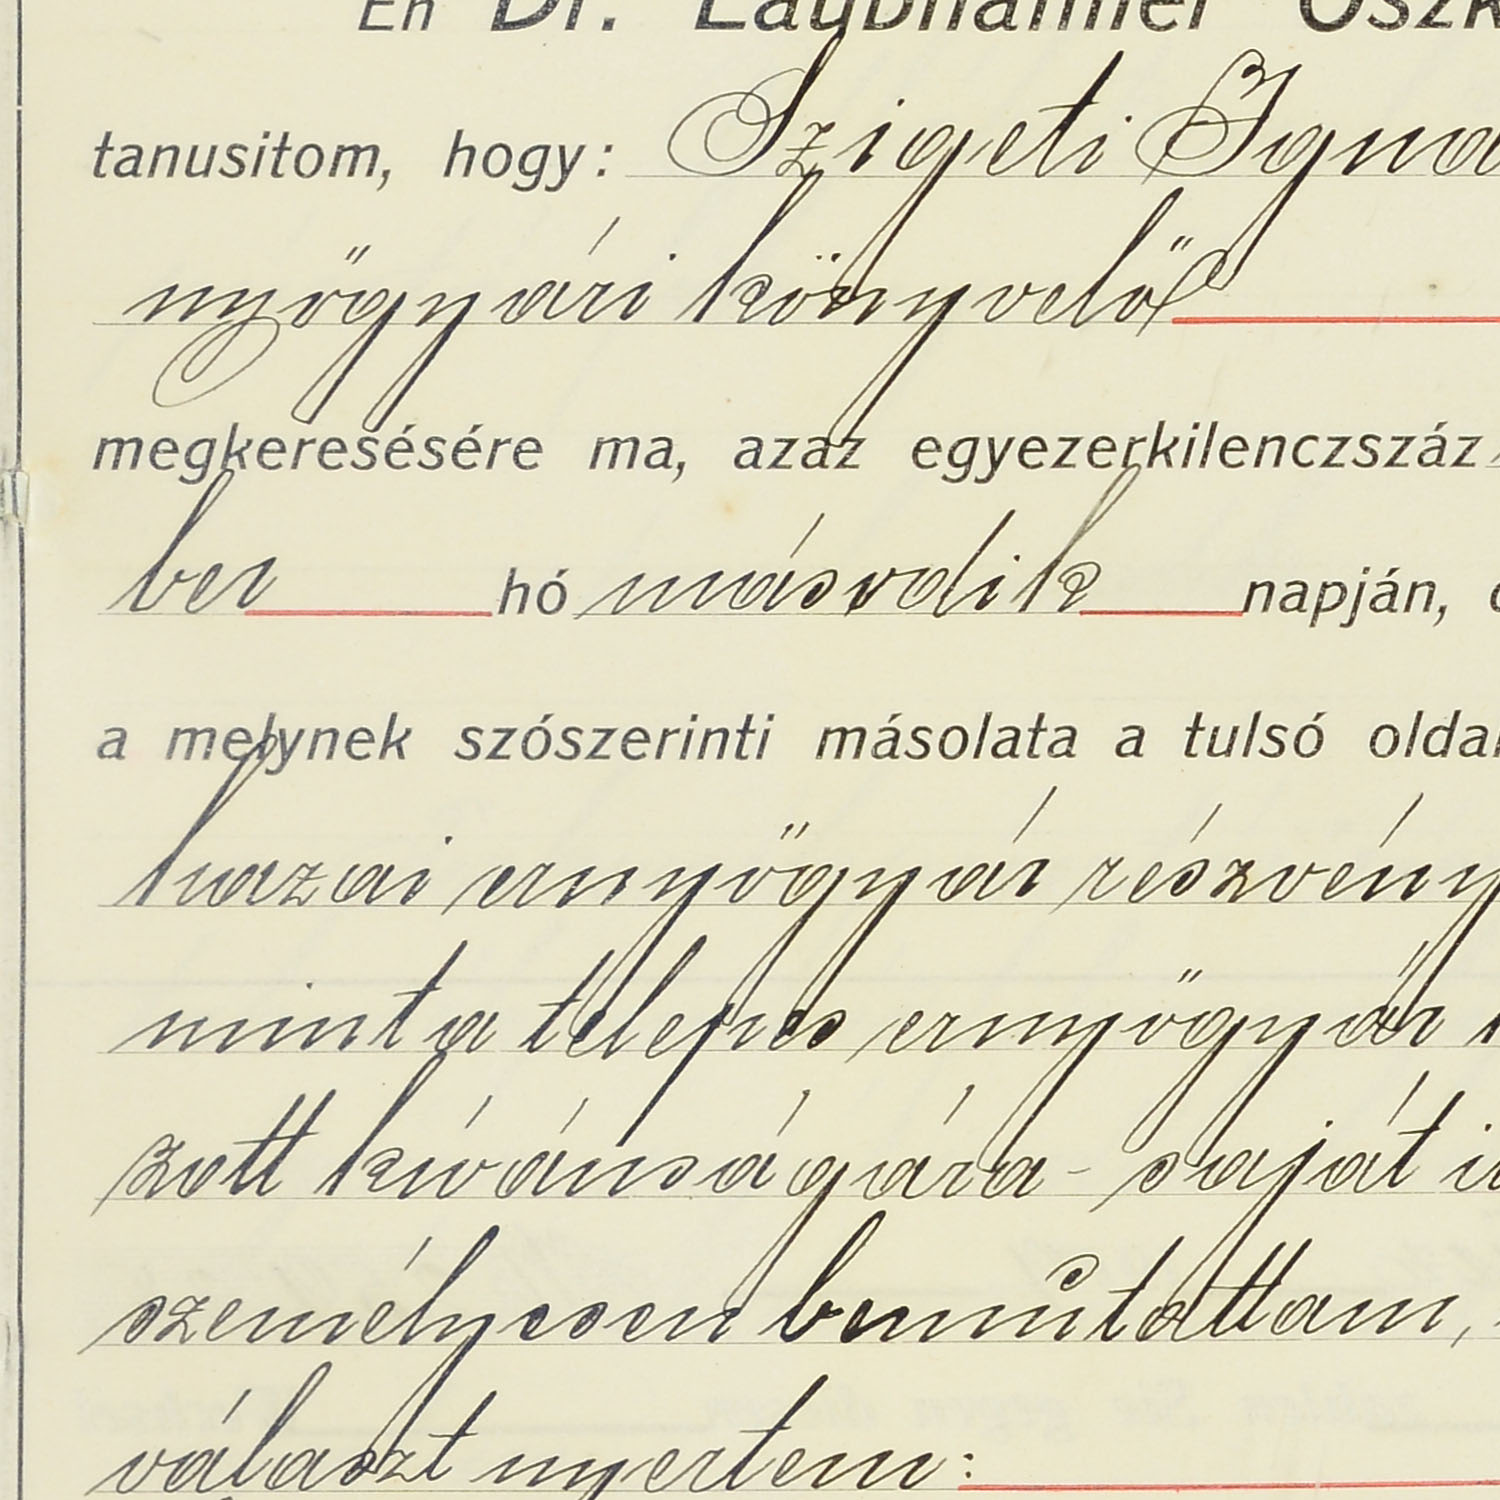 Én Dr. Laubhaimer Oszk
tanusitom, hogy: Szigeti Igná
nyőgyári könyvelő
megkeresésére ma, azaz egyezerkilenczszáz
ber hó második napján,
a melynek szószerinti másolata a tulsó oldal
hazai ernyőgyár részvény
mint a telepes ernyőgyár
zott kívánságára - saját
személyesen bemutattam,
választ nyertem: